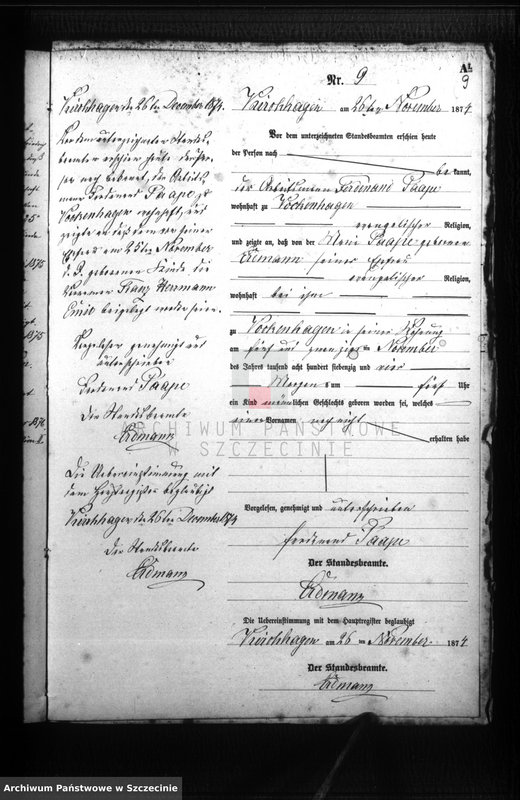 A1
9
Nr. 9
Kirchhagen am 26ten November 1874
Vor dem unterzeichneten Standesbeamten erschien heute
der Person nach
be kannt,
der Arbeitsmann Ferdinand Paape
wohnhaft zu Vockenhagen
evangelischer Religion,
und zeigte an, daß von der Marie Paape geborenen
Erdmann seiner Ehefrau
evangelischer Religion,
wohnhaft bei ihm
zu Vockenhagen in seiner Wohnung
am fünf und zwanzigten November
des Jahres tausend acht hundert siebenzig und vier
Morgens um fünf Uhr
ein Kind männlichen Geschlechts geboren worden sei, welches
einen Vornamen noch nicht
erhalten habe
Vorgelesen, genehmigt und unterschrieben
Ferdinand Paape
Der Standesbeamte.
Erdmann
Die Uebereinstimmung mit dem Hauptregister beglaubigt
Kirchhagen am 26 ten November 1874
Der Standesbeamte.
Erdmann
Kirchhagen den 26ten December 1874.
Vor dem unterzeichneten Standes-
beamten erschien heute der Per-
son nach bekannt, der Arbeits-
mann Ferdinand Paape, zu
Vockenhagen wohnhaft, und
zeigte an daß dem von seiner
Ehefrau am 25ten November
d. J. geborenen Kinde die
Vornamen Franz Herrmann
Emil beigelegt worden seien.
Vorgelesen genehmigt und
unterschrieben
Ferdinand Paape
Der Standesbeamte
Erdmann
Die Uebereinstimmung mit
dem Hauptregister beglaubigt
Kirchhagen den 26ten December 1874
Der Standesbeamte
Erdmann
ARCHIWUM PAŃSTWOWE
W SZCZECINIE
Archiwum Państwowe w Szczecinie